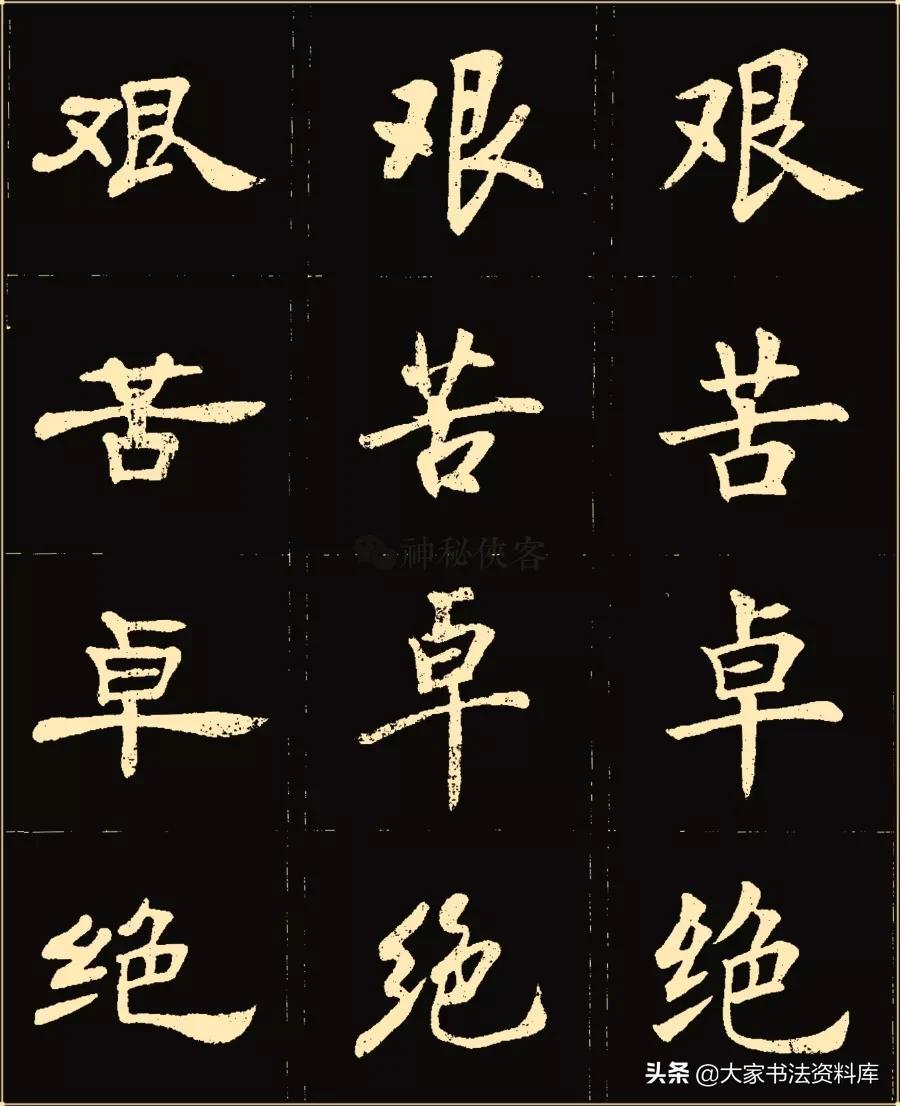 艰 艰 艰
苦 苦 苦
神秘侠客
卓 卓 卓
绝 绝 绝
头条 @大家书法资料库